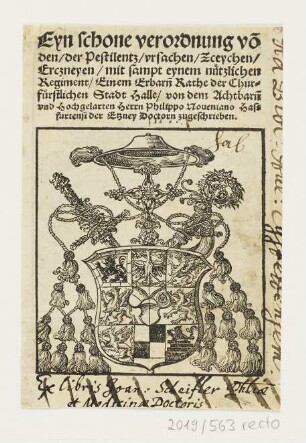 Eyn schone verordnung võ
den / der Pestilentz / vrsachen / Zceychen /
Erczneyen / mit sampt eynem nützlichen
Regiment / Einem Erbarn Rathe der Chur-
fürstlichen Stadt Halle / von dem Achtbarn
vnd Hochgelarten Herrn Philippo Noueniano Hass
furtensi der Etzney Doctorn zugeschrieben.
Ex libris Joan: Scheifler Phliæ
et Medicinæ Doctoris
2019/563 recto